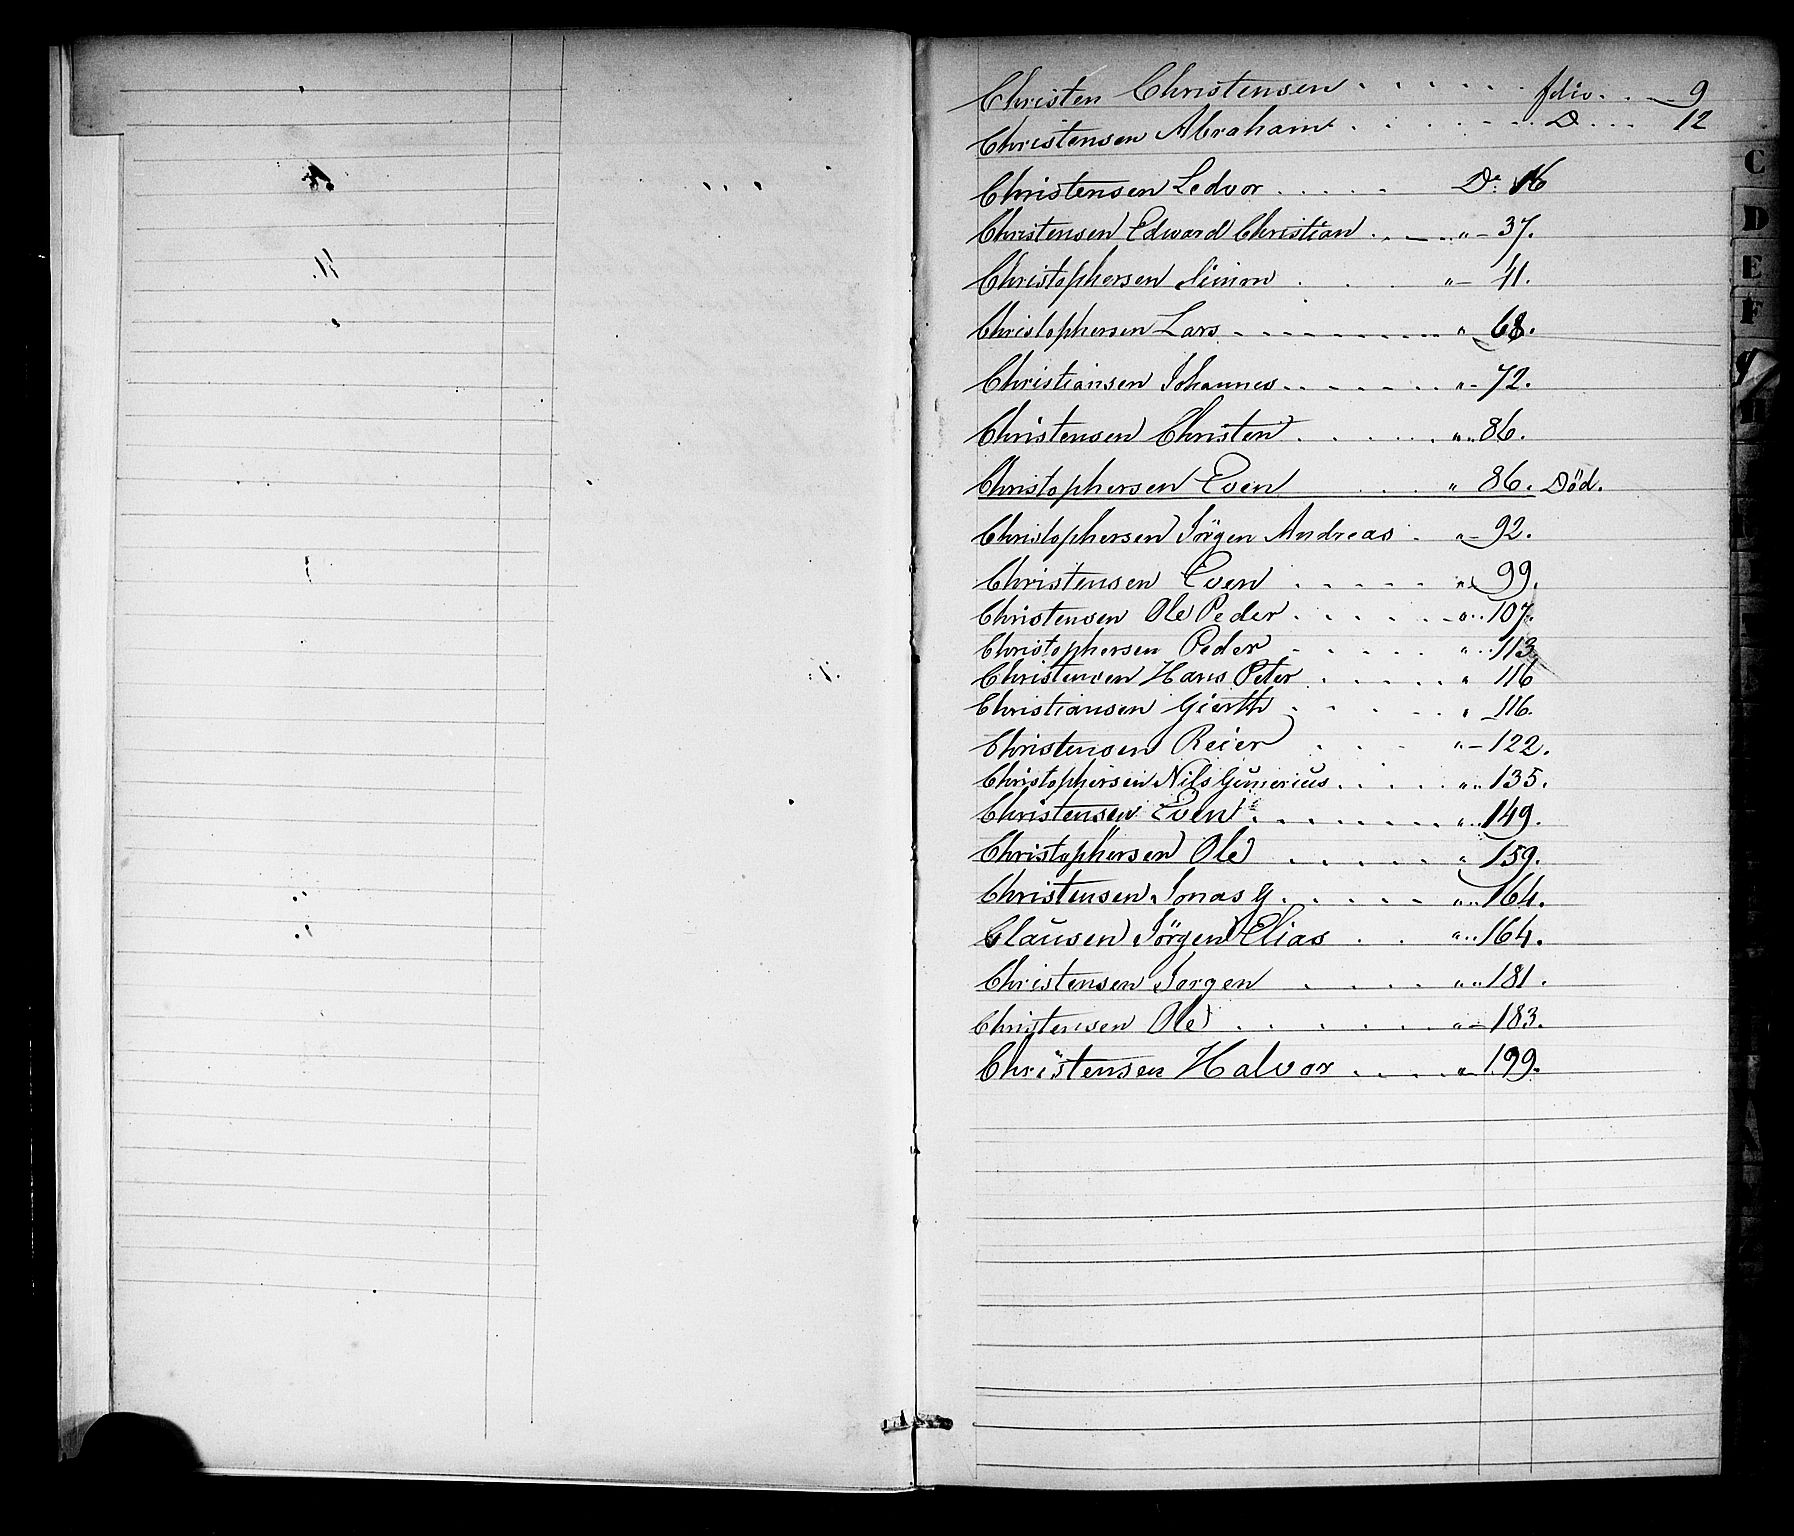 Christen Christensen . . . . . . fdio. . . 9
Christensen Abraham . . . . . . D . . . 12
Christensen Ledvor . . . . . D: 16
Christensen Edward Christian . . . „ - 37.
Christophersen Simon . . . „ - 41.
Christophersen Lars - - - - - - „ 68.
Christiansen Johannes . . . . . . „ - 72.
Christensen Christen . . . . . „ .. 86.
Christophersen Even . . . „ 86. Död.
Christophersen Jörgen Andreas . „ - 92.
Christensen Even . . . . . „ 99.
Christensen Ole Peder . . . . . „ .. 107.
Christophersen Peder . . . . . „ .. 113
Christensen Hans Peter . . . . . „ 116
Christiansen Gierth . . . . „ 116.
Christensen Reier . . . „ - 122.
Christophersen Nils Gumerius . . . . . „ .. 135.
Christensen Even . . . . . . „ .. 149.
Christophersen Ole . . . . . „ 159.
Christensen Jonas G. . . . . . „ .. 164.
Clausen Jörgen Elias . . „ .. 164.
Christensen Jorgen . . . . „ .. 181.
Christensen Ole . . . . . „ - 183.
Christensen Halvor . . . . „ 199.
C
D
E
F